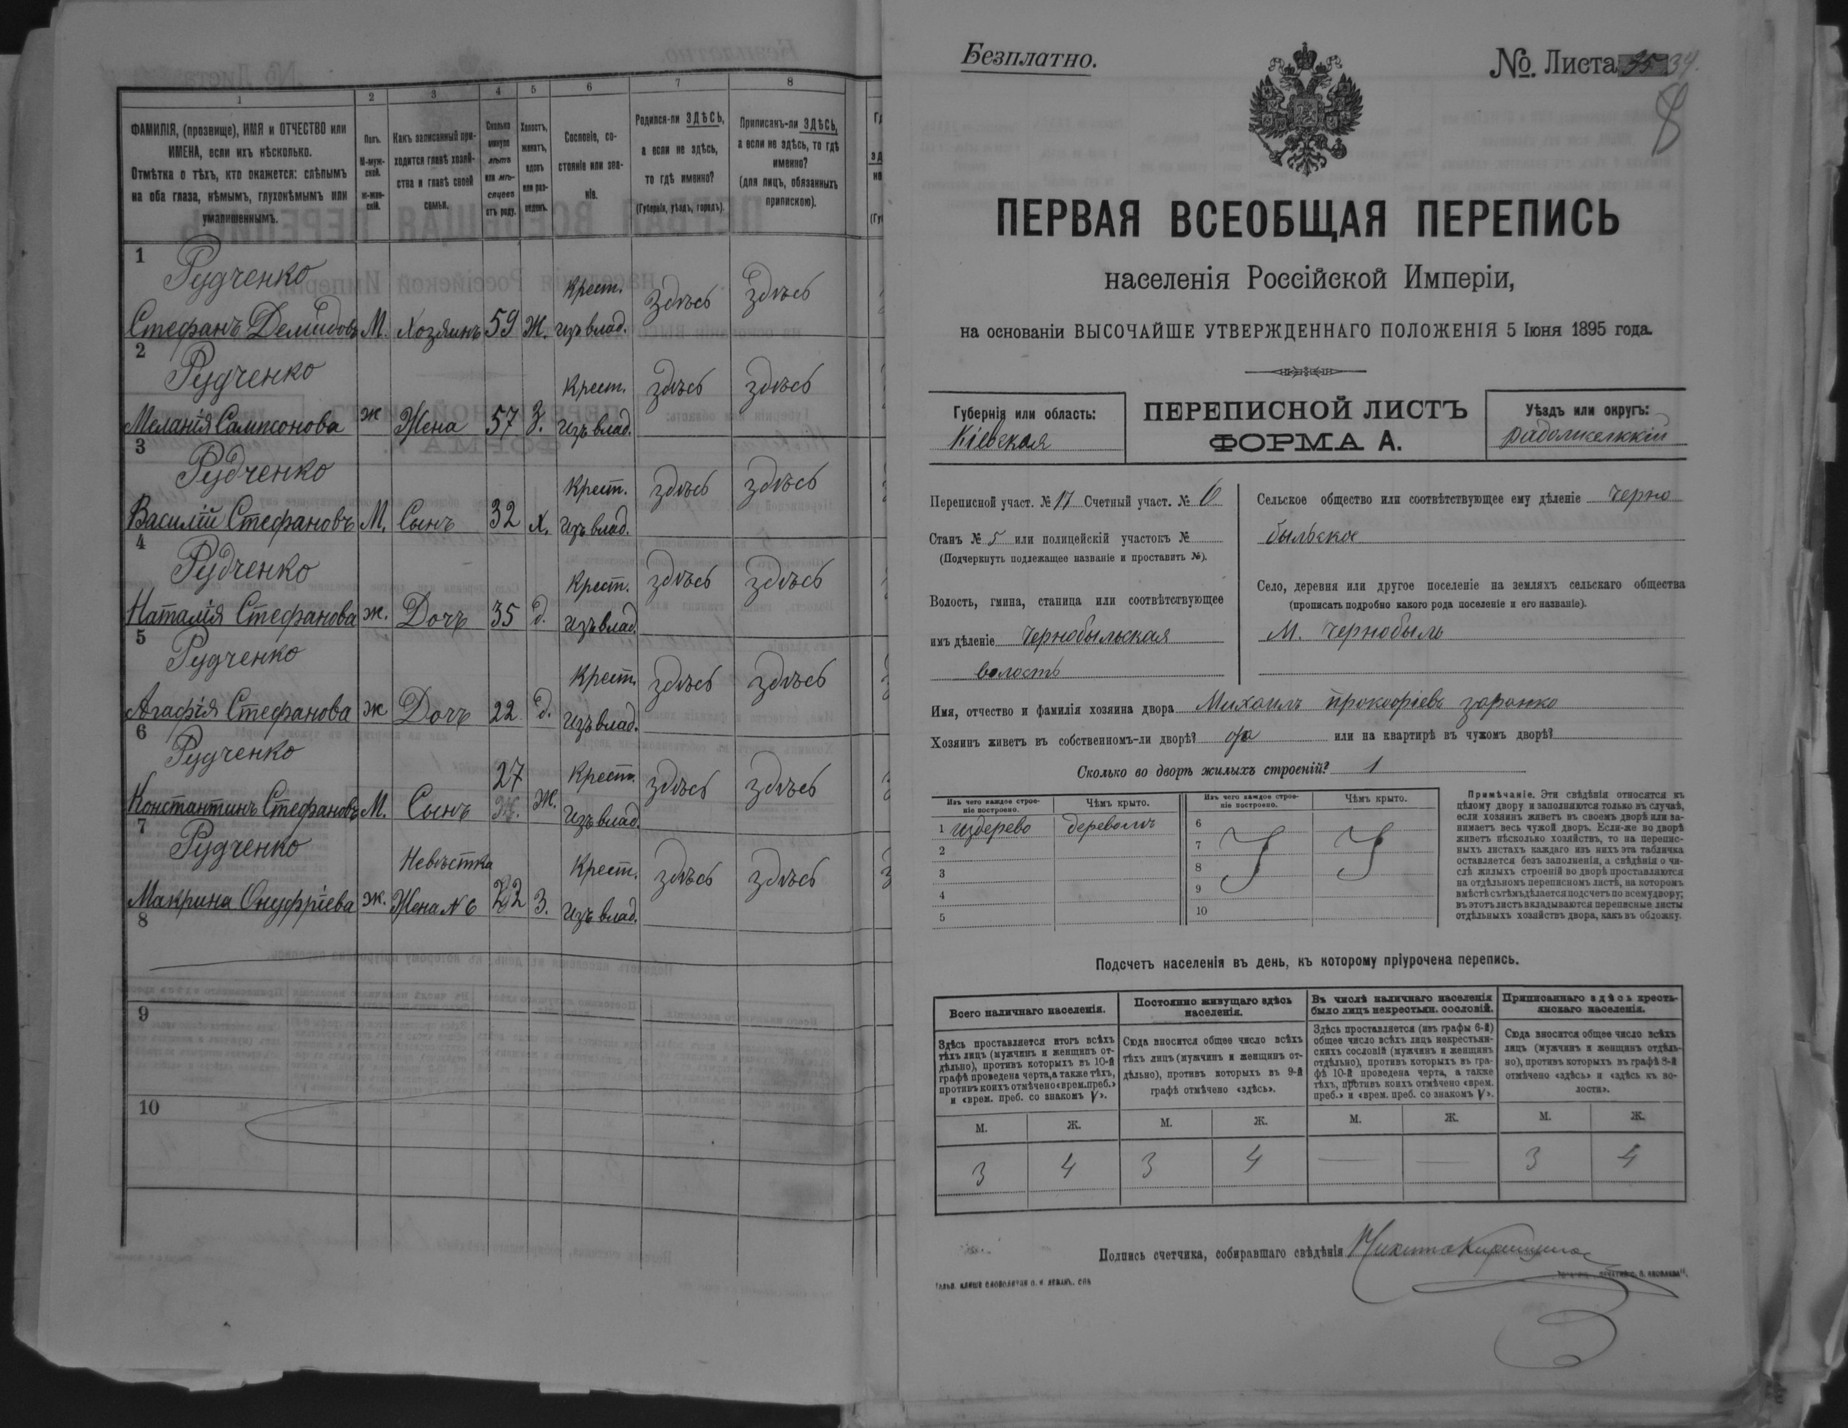 1 2 3 4 5 6 7 8
ФАМИЛІЯ, (прозвище), ИМЯ и ОТЧЕСТВО или
ИМЕНА, если ихъ нѣсколько.
Отмѣтка о тѣхъ, кто окажется: слѣпымъ
на оба глаза, нѣмымъ, глухонѣмымъ или
умалишеннымъ.
Полъ.
М-муж-
ской.
ж-жен-
скій.
Какъ записанный при-
ходится главѣ хозяй-
ства и главѣ своей
семьи.
Сколько
минуло
лѣтъ
или мѣ-
сяцевъ
отъ роду.
Холостъ,
женатъ,
вдовъ
или раз-
веденъ.
Сословіе, со-
стояніе или зва-
ніе.
Родился-ли ЗДѢСЬ,
а если не здѣсь,
то гдѣ именно?
(Губернія, уѣздъ, городъ).
Приписанъ-ли ЗДѢСЬ,
а если не здѣсь, то гдѣ
именно?
(для лицъ, обязанныхъ
припискою).
1
Рудченко Крест. здѣсь здѣсь
Стефанъ Демидовъ М. Хозяинъ 59 Ж. изъ влад.
2
Рудченко Крест. здѣсь здѣсь
Меланія Самсонова ж Жена 57 З. изъ влад.
3
Рудченко Крест. здѣсь здѣсь
Василій Стефановъ М. Сынъ 32 Х. изъ влад.
4
Рудченко Крест. здѣсь здѣсь
Наталія Стефанова ж. Дочь 35 д. изъ влад.
5
Рудченко Крест. здѣсь здѣсь
Агафія Стефанова ж Дочь 22 д. изъ влад.
6
Рудченко 27 Крест. здѣсь здѣсь
Константинъ Стефановъ М. Сынъ Ж. изъ влад.
7
Рудченко Невѣстка Крест. здѣсь здѣсь
Макрина Онуфріева ж. Жена N 6 22 З. изъ влад.
8
9
10
Безплатно.
№ Листа 35 34.
ПЕРВАЯ ВСЕОБЩАЯ ПЕРЕПИСЬ
населенія Россійской Имперіи,
на основаніи ВЫСОЧАЙШЕ УТВЕРЖДЕННАГО ПОЛОЖЕНІЯ 5 Іюня 1895 года.
Губернія или область:
Кіевская
ПЕРЕПИСНОЙ ЛИСТЪ
ФОРМА А.
Уѣздъ или округъ:
Радомысльскій
Переписной участ. № 17 Счетный участ. № 6
Станъ № 5 или полицейскій участокъ №
(Подчеркнуть подлежащее названіе и проставить №).
Волость, гмина, станица или соотвѣтствующее
имъ дѣленіе Чернобыльская
волость
Сельское общество или соотвѣтствующее ему дѣленіе Черно
быльское
Село, деревня или другое поселеніе на земляхъ сельскаго общества
(прописать подробно какого рода поселеніе и его названіе).
М. Чернобыль
Имя, отчество и фамилія хозяина двора Михаилъ Прокофіевъ
Хозяинъ живетъ въ собственномъ-ли дворѣ? или на квартирѣ въ чужомъ дворѣ?
Сколько во дворѣ жилыхъ строеній? 1
Изъ чего каждое строе-
ніе построено. Чѣмъ крыто. Изъ чего каждое строе-
ніе построено. Чѣмъ крыто.
1 издерево деревомъ 6
2 7
3 8
4 9
5 10
Примѣчаніе. Эти свѣдѣнія относятся къ
цѣлому двору и заполняются только въ случаѣ,
если хозяинъ живетъ въ своемъ дворѣ или за-
нимаетъ весь чужой дворъ. Если-же во дворѣ
живетъ нѣсколько хозяйствъ, то на перепис-
ныхъ листахъ каждаго изъ нихъ эта табличка
оставляется безъ заполненія, а свѣдѣнія о чи-
слѣ жилыхъ строеній во дворѣ проставляются
на отдѣльномъ переписномъ листѣ, на которомъ
вмѣстѣ съ тѣмъ дѣлается подсчетъ по всему двору;
въ этотъ листъ вкладываются переписные листы
отдѣльныхъ хозяйствъ двора, какъ въ обложку.
Подсчетъ населенія въ день, къ которому пріурочена перепись.
Всего наличнаго населенія.
Здѣсь проставляется итогъ всѣхъ
тѣхъ лицъ (мужчинъ и женщинъ от-
дѣльно), противъ которыхъ въ 10-й
графѣ проведена черта, а также тѣхъ,
противъ коихъ отмѣчено «врем. преб.»
и «врем. преб. со знакомъ V».
Постоянно живущаго здѣсь
населенія.
Сюда вносится общее число всѣхъ
тѣхъ лицъ (мужчинъ и женщинъ от-
дѣльно), противъ которыхъ въ 9-й
графѣ отмѣчено «здѣсь».
Въ числѣ наличнаго населенія
было лицъ некрестьян. сословій.
Здѣсь проставляется (изъ графы 6-й)
общее число всѣхъ лицъ некрестьян-
скихъ сословій (мужчинъ и женщинъ
отдѣльно), противъ которыхъ въ гра-
фѣ 10-й проведена черта, а также
тѣхъ, противъ коихъ отмѣчено «врем.
преб.» и «врем. преб. со знакомъ V».
Приписаннаго здѣсь кресть-
янскаго населенія.
Сюда вносится общее число всѣхъ
лицъ (мужчинъ и женщинъ отдѣль-
но), противъ которыхъ въ графѣ 8-й
отмѣчено «здѣсь» и «здѣсь въ во-
лости».
М. Ж. М. Ж. М. Ж. М. Ж.
3 4 3 4 — — 3 4
Подпись счетчика, собиравшаго свѣдѣнія Никита